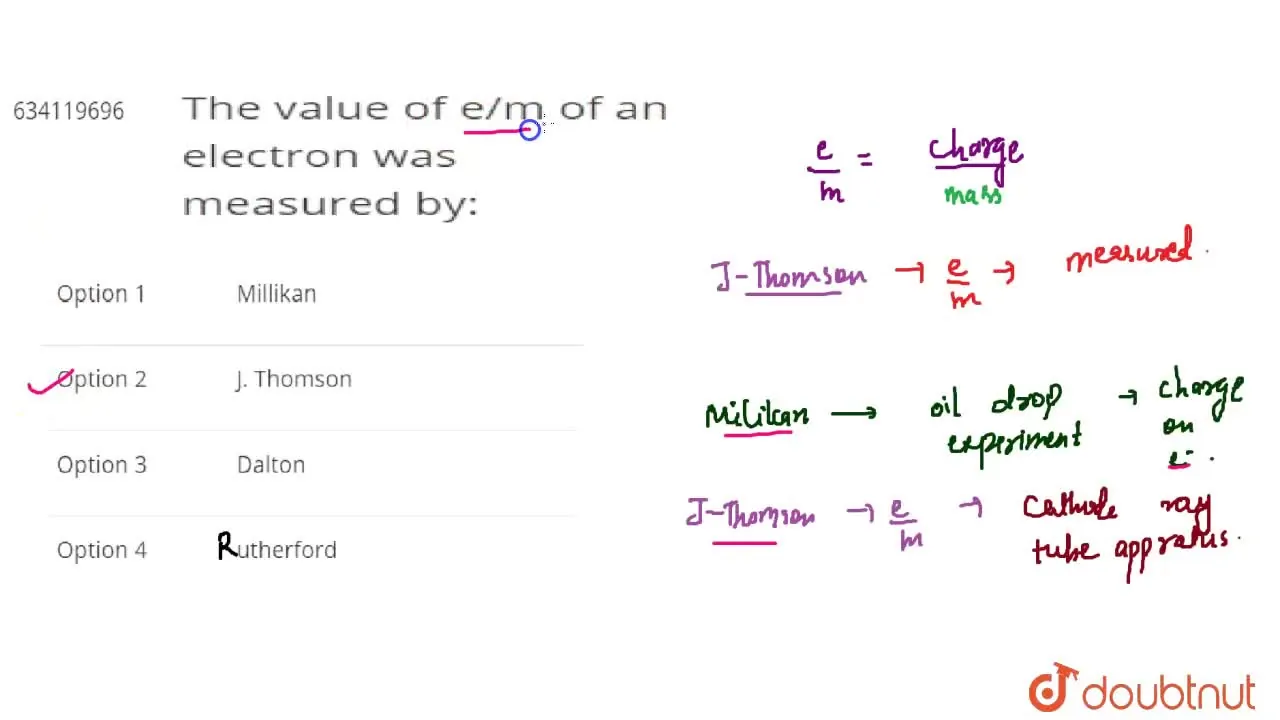 634119696
The value of e/m of an
electron was
measured by:
Option 1 Millikan
Option 2 J. Thomson
Option 3 Dalton
Option 4 Rutherford
e/m = charge/mass
J-Thomson → e/m → measured.
Millikan → oil drop experiment → charge on e-.
J-Thomson → e/m → Cathode ray tube appratus.
doubtnut